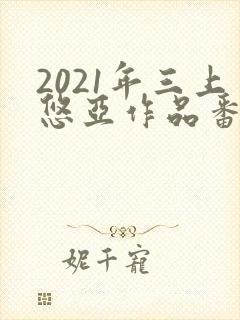 2021年三上
悠亞作品番
妮千寵